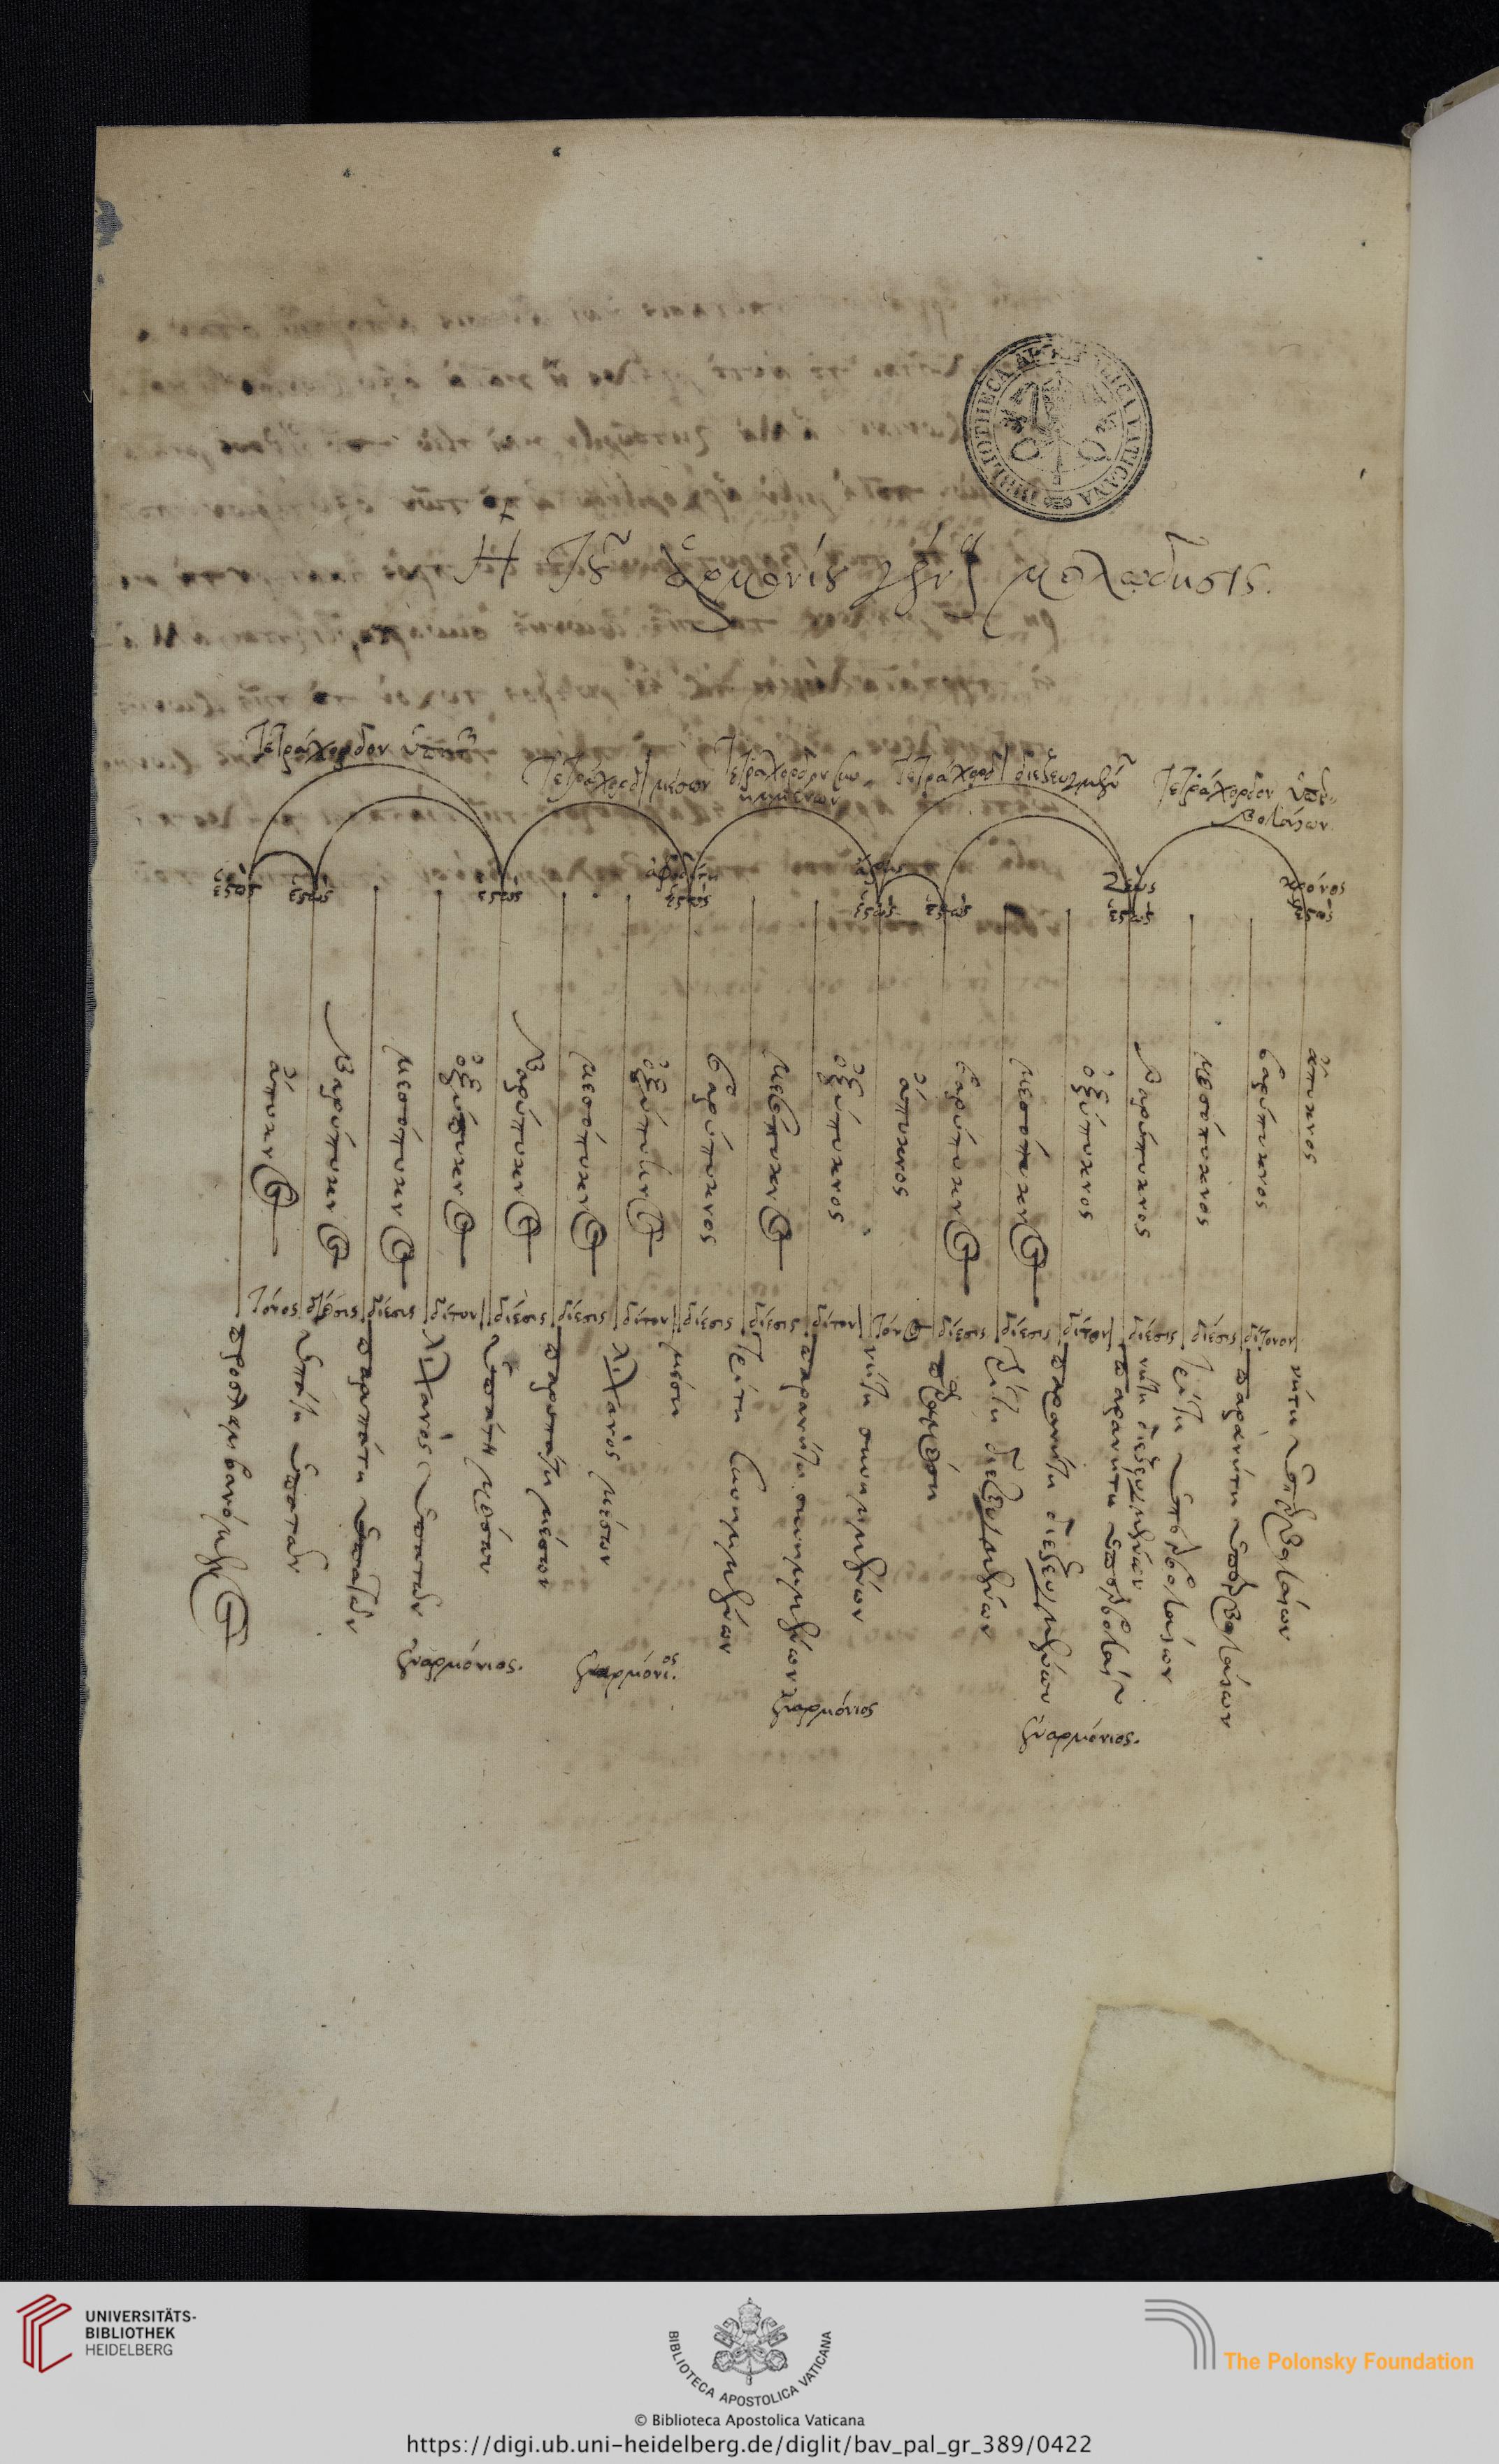 Ἡ τοῦ ἁρμονίας γένους μελῴδησις.
Τετράχορδον ὑπατῶν
Τετράχορδ μέσων
Τετράχορδον συν
ημμένων
Τετράχορδ διεζευγμένων
Τετράχορδον ὑπερ
βολαίων
ἀφροδίτη
ἄρης
Ζεὺς
κρόνος
ἑστὼς ἑστὼς ἑστὼς ἑστὼς ἑστὼς ἑστὼς ἑστὼς ἑστὼς
ἄπυκνος
βαρύπυκνος
μεσόπυκνος
ὀξύπυκνος
βαρύπυκνος
μεσόπυκνος
ὀξύπυκνος
βαρύπυκνος
μεσόπυκνος
ὀξύπυκνος
ἄπυκνος
βαρύπυκνος
μεσόπυκνος
ὀξύπυκνος
βαρύπυκνος
μεσόπυκνος
βαρύπυκνος
ἄπυκνος
τόνος δίεσις δίεσις δίτον δίεσις δίεσις δίτον δίεσις δίεσις δίτον τόνος δίεσις δίεσις δίτον δίεσις δίεσις δίτονον
προσλαμβανόμενος
ὑπάτη ὑπατῶν
παρυπάτη ὑπατῶν
λιχανὸς ὑπατῶν
ὑπάτη μέσων
παρυπάτη μέσων
λιχανὸς μέσων
μέση
τρίτη συνημμένων
παρανήτη συνημμένων
νήτη συνημμένων
παραμέση
τρίτη διεζευγμένων
παρανήτη διεζευγμένων
νήτη διεζευγμένων
παρανήτη ὑπερβολαίων
τρίτη ὑπερβολαίων
παρανήτη ὑπερβολαίων
νήτη ὑπερβολαίων
ἐναρμόνιος.
ἐναρμόνιος.
ἐναρμόνιος
ἐναρμόνιος.
BIBLIOTHECA APOSTOLICA VATICANA
UNIVERSITÄTS-
BIBLIOTHEK
HEIDELBERG
BIBLIOTECA APOSTOLICA VATICANA
The Polonsky Foundation
© Biblioteca Apostolica Vaticana
https://digi.ub.uni-heidelberg.de/diglit/bav_pal_gr_389/0422